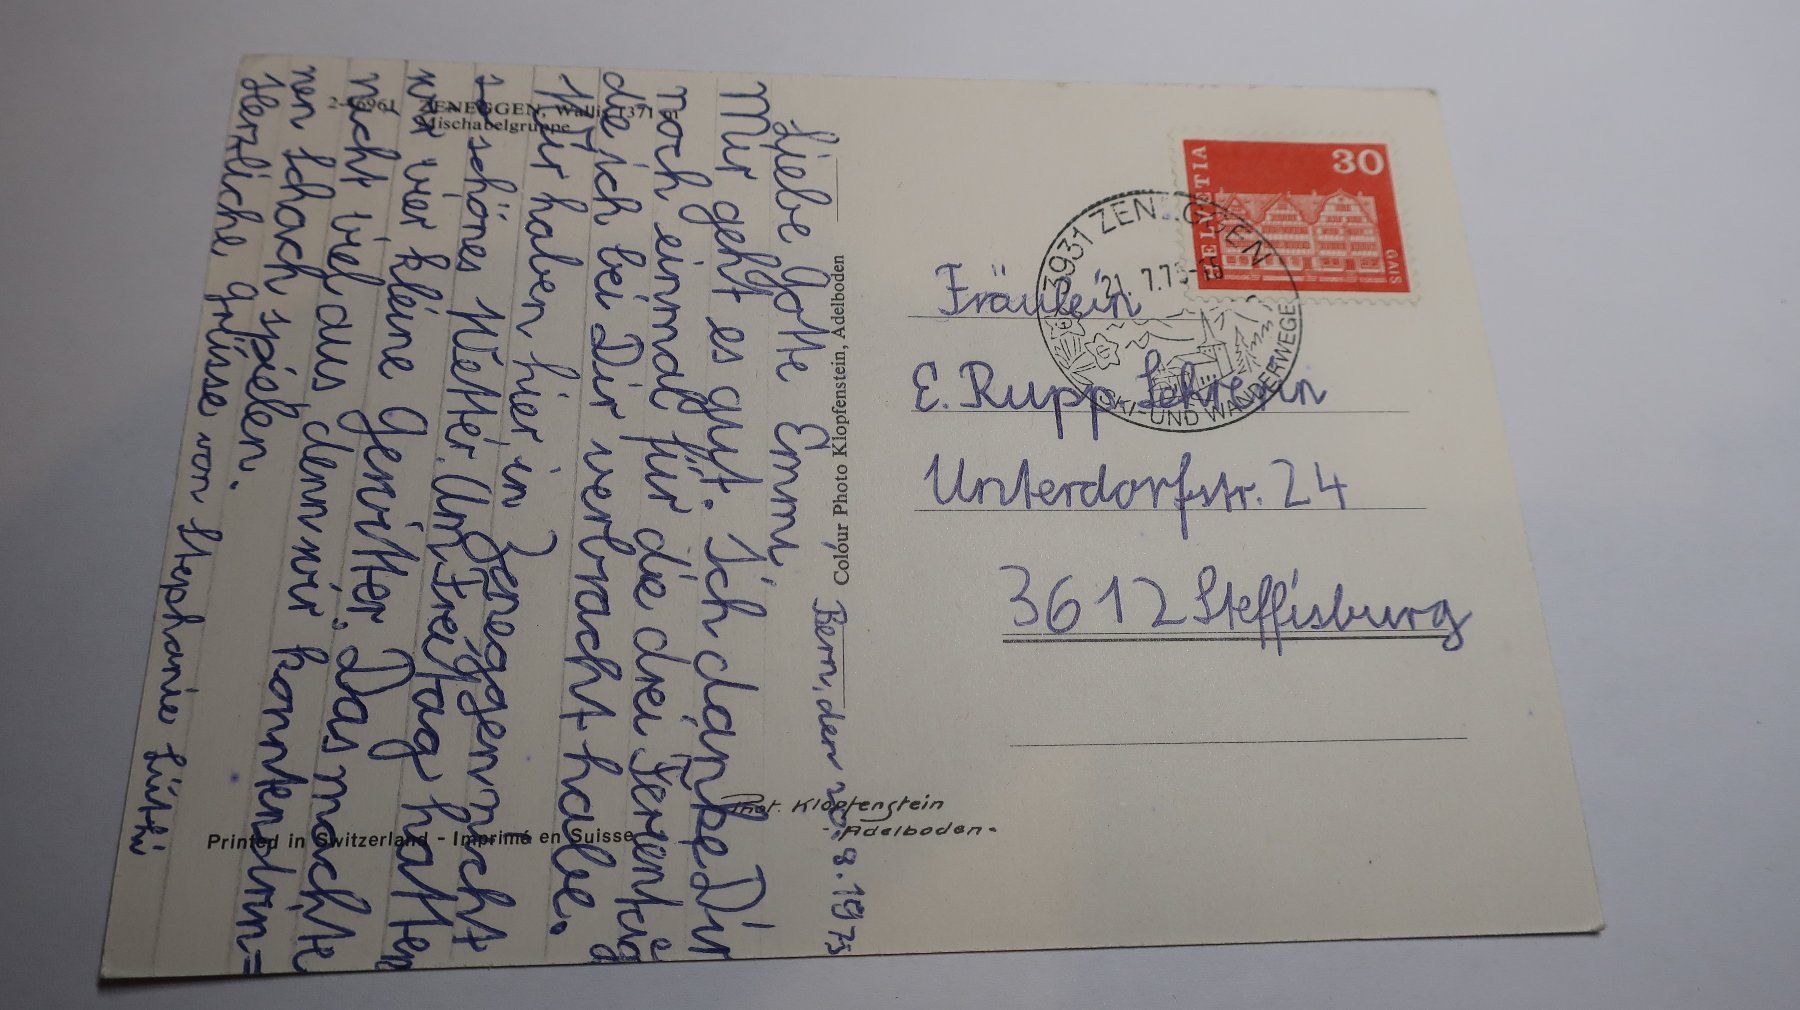 2-46961 ZENEGGEN, Wallis 1371 m
Mischabelgruppe
Bern, den 20.8.1975
Liebe Gotte Emmi,
Mir geht es gut. Ich danke Dir
noch einmal für die drei Ferientage
die ich bei Dir verbracht habe.
Wir haben hier in Zeneggen nicht
so schönes Wetter. Am Freitag hatten
wir vier kleine Gewitter. Das machte
nicht viel aus, denn wir konnten drin=
nen Schach spielen.
Herzliche Grüsse von Stephanie Lüthi
Colour Photo Klopfenstein, Adelboden
Phot. Klopfenstein
- Adelboden -
Printed in Switzerland - Imprimé en Suisse
HELVETIA
30
GAIS
3931 ZENEGGEN
21. 7.75
SKI- UND WANDERWEGE
Fräulein
E. Rupp Lehrerin
Unterdorfstr. 24
3612 Steffisburg